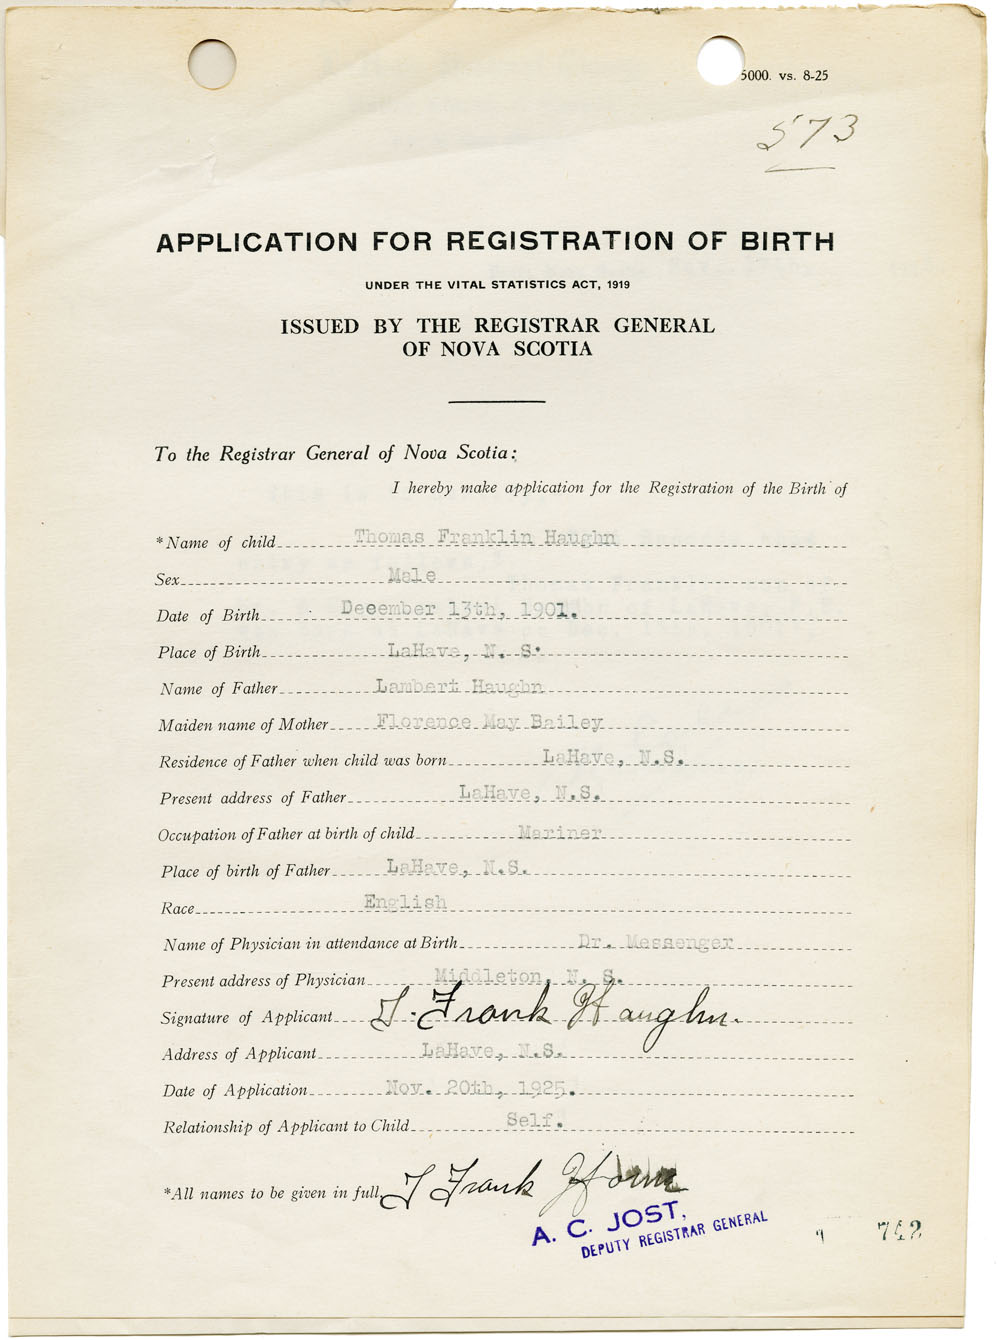 5000. vs. 8-25
573
APPLICATION FOR REGISTRATION OF BIRTH
UNDER THE VITAL STATISTICS ACT, 1919
ISSUED BY THE REGISTRAR GENERAL
OF NOVA SCOTIA
To the Registrar General of Nova Scotia:
I hereby make application for the Registration of the Birth of
*Name of child Thomas Franklin Haughn
Sex Male
Date of Birth December 13th, 1901.
Place of Birth LaHave, N. S.
Name of Father Lambert Haughn
Maiden name of Mother Florence May Bailey
Residence of Father when child was born LaHave, N.S.
Present address of Father LaHave, N.S.
Occupation of Father at birth of child Mariner
Place of birth of Father LaHave, N.S.
Race English
Name of Physician in attendance at Birth Dr. Messenger
Present address of Physician Middleton, N. S.
Signature of Applicant T. Frank Haughn.
Address of Applicant LaHave, N.S.
Date of Application Nov. 20th, 1925.
Relationship of Applicant to Child Self.
*All names to be given in full T Frank
A. C. JOST,
DEPUTY REGISTRAR GENERAL
742